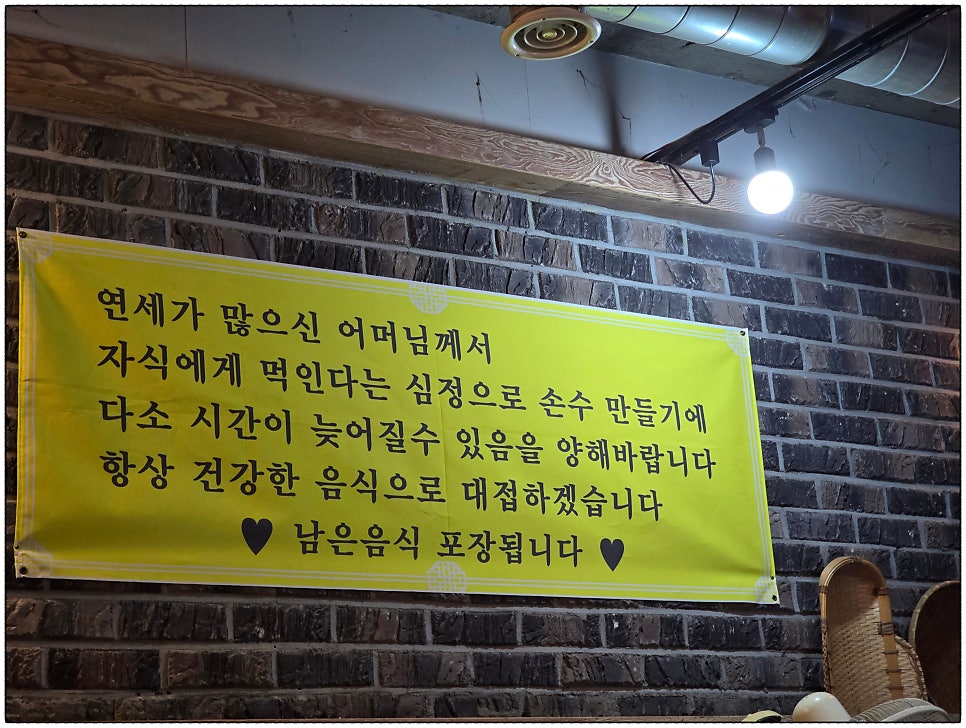 연세가 많으신 어머님께서
자식에게 먹인다는 심정으로 손수 만들기에
다소 시간이 늦어질수 있음을 양해바랍니다
항상 건강한 음식으로 대접하겠습니다
♥ 남은음식 포장됩니다 ♥